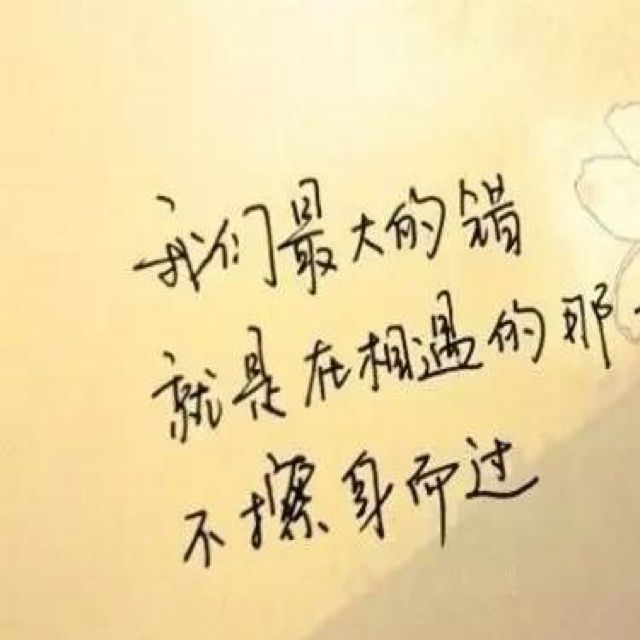 我们最大的错
就是在相遇的那
不擦身而过